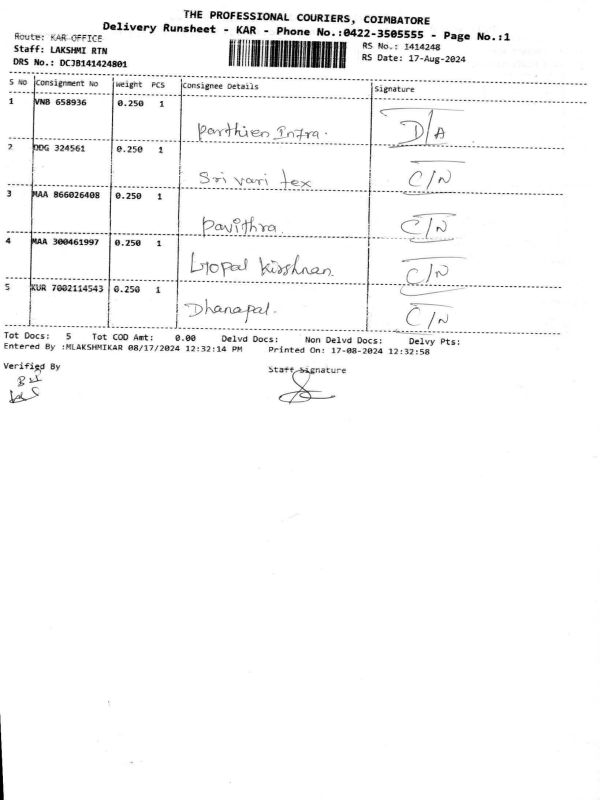 THE PROFESSIONAL COURIERS, COIMBATORE
Delivery Runsheet - KAR - Phone No.:0422-3505555 - Page No.:1
Route: KAR-OFFICE RS No.: 1414248
Staff: LAKSHMI RTN RS Date: 17-Aug-2024
DRS No.: DCJB141424801
S NO Consignment No Weight PCS Consignee Details Signature
1 VNB 658936 0.250 1
Parthien Infra. D/A
2 DDG 324561 0.250 1
Sri vari tex C/N
3 MAA 866026408 0.250 1
Pavithra. C/N
4 MAA 300461997 0.250 1
Gopal Kirshnan C/N
5 KUR 7002114543 0.250 1
Dhanapal. C/N
Tot Docs: 5 Tot COD Amt: 0.00 Delvd Docs: Non Delvd Docs: Delvy Pts:
Entered By :MLAKSHMIKAR 08/17/2024 12:32:14 PM Printed On: 17-08-2024 12:32:58
Verified By Staff Signature